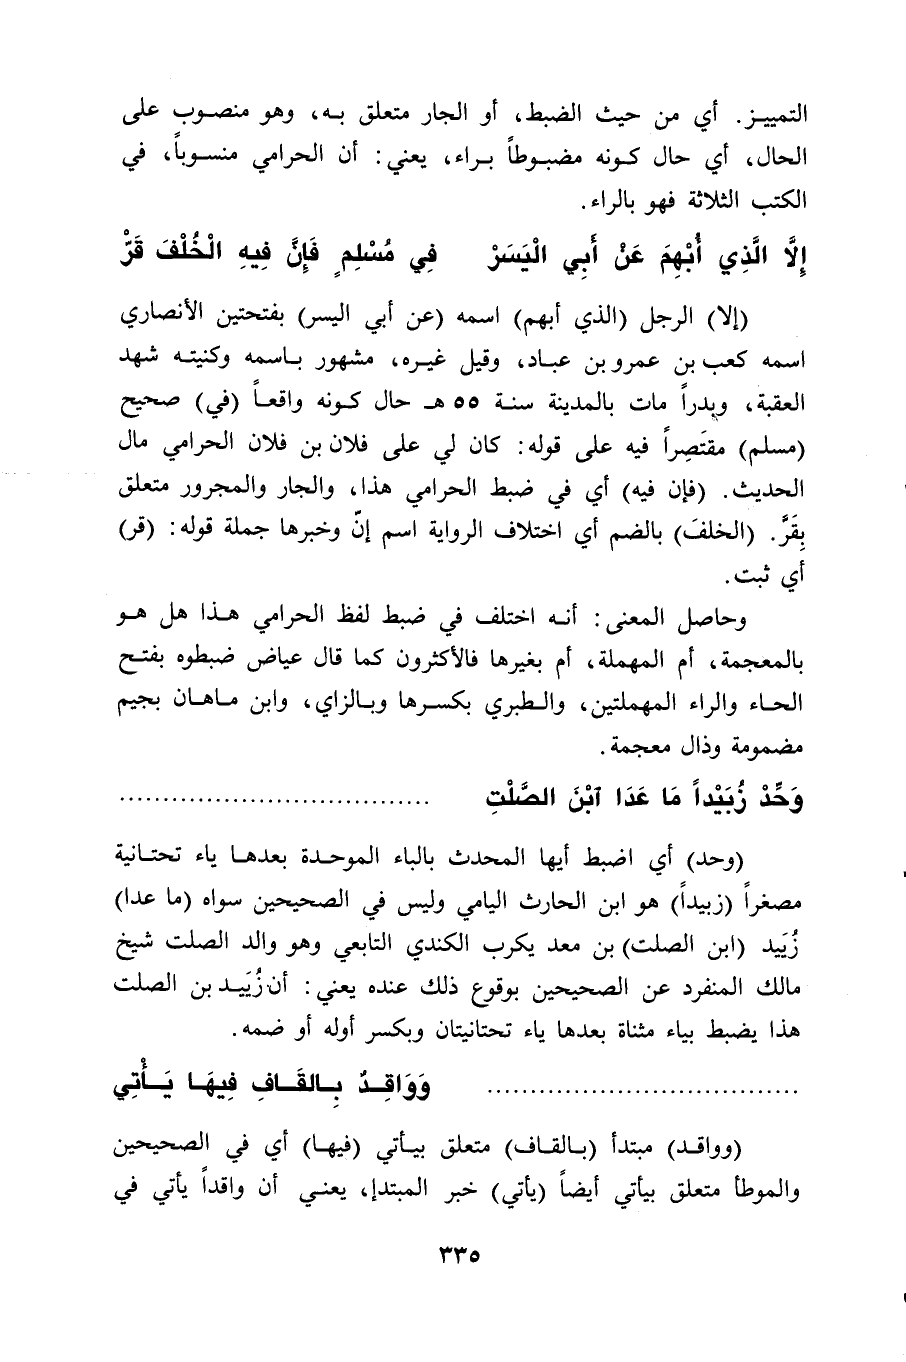 التمييز. أي من حيث الضبط، أو الجار متعلق به، وهو منصوب على
الحال، أي حال كونه مضبوطاً براء، يعني: أن الحرامي منسوباً، في
الكتب الثلاثة فهو بالراء.
إِلَّا الَّذِي أُبْهِمَ عَنْ أَبِي الْيَسَرْ فِي مُسْلِمٍ فَإِنَّ فِيهِ الْخُلْفَ قَرّْ
(إلا) الرجل (الذي أبهم) اسمه (عن أبي اليسر) بفتحتين الأنصاري
اسمه كعب بن عمرو بن عباد، وقيل غيره، مشهور باسمه وكنيته شهد
العقبة، وبدراً مات بالمدينة سنة ٥٥ هـ حال كونه واقعاً (في) صحيح
(مسلم) مقتَصِراً فيه على قوله: كان لي على فلان بن فلان الحرامي مال
الحديث. (فإن فيه) أي في ضبط الحرامي هذا، والجار والمجرور متعلق
بِقَرَّ. (الخلفَ) بالضم أي اختلاف الرواية اسم إنّ وخبرها جملة قوله: (قر)
أي ثبت.
وحاصل المعنى: أنه اختلف في ضبط لفظ الحرامي هذا هل هو
بالمعجمة، أم المهملة، أم بغيرها فالأكثرون كما قال عياض ضبطوه بفتح
الحاء والراء المهملتين، والطبري بكسرها وبالزاي، وابن ماهان بجيم
مضمومة وذال معجمة.
وَحِّدْ زُبَيْداً مَا عَدَا آبْنَ الصَّلْتِ ....................................
(وحد) أي اضبط أيها المحدث بالباء الموحدة بعدها ياء تحتانية
مصغراً (زبيداً) هو ابن الحارث اليامي وليس في الصحيحين سواه (ما عدا)
زُيَيد (ابن الصلت) بن معد يكرب الكندي التابعي وهو والد الصلت شيخ
مالك المنفرد عن الصحيحين بوقوع ذلك عنده يعني: أن زُيَيد بن الصلت
هذا يضبط بياء مثناة بعدها ياء تحتانيتان وبكسر أوله أو ضمه.
.................................... وَوَاقِدٌ بِالقَافِ فِيهَا يَأْتِي
(وواقد) مبتدأ (بالقاف) متعلق بيأتي (فيها) أي في الصحيحين
والموطأ متعلق بيأتي أيضاً (يأتي) خبر المبتدإ، يعني أن واقداً يأتي في
٣٣٥